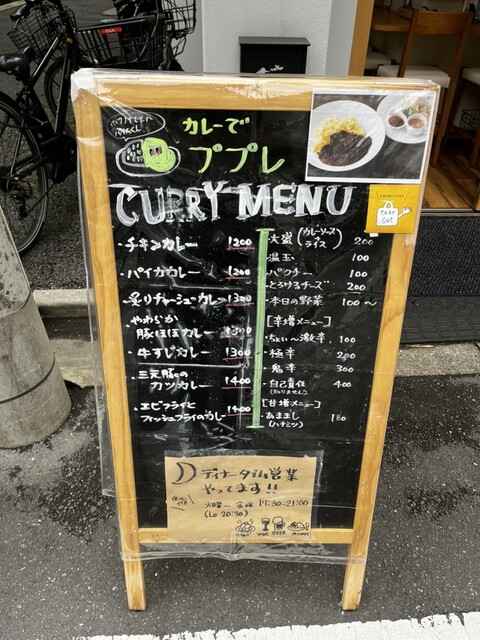 カレーで
ププレ
CURRY MENU
take out
・チキンカレー 1200
・パイカカレー 1200
・炙りチャーシューカレー 1300
・やわらか
豚ほほカレー 1300
・牛すじカレー 1300
・三元豚の
カツカレー 1400
・エビフライと
フィッシュフライのカレー 1400
・大盛(カレーソース
ライス) 200
・温玉 100
・パクチー 100
・とろけるチーズ 200
・本日の野菜 100〜
[辛増メニュー]
・ちょい〜激辛 100
・極辛 200
・鬼辛 300
・自己責任 400
[甘増メニュー]
・あままし
(ハチミツ)
ディナータイム営業
やってます!!
火曜〜金曜 17:30-21:00
(Lo 20:30)
WINE BEER